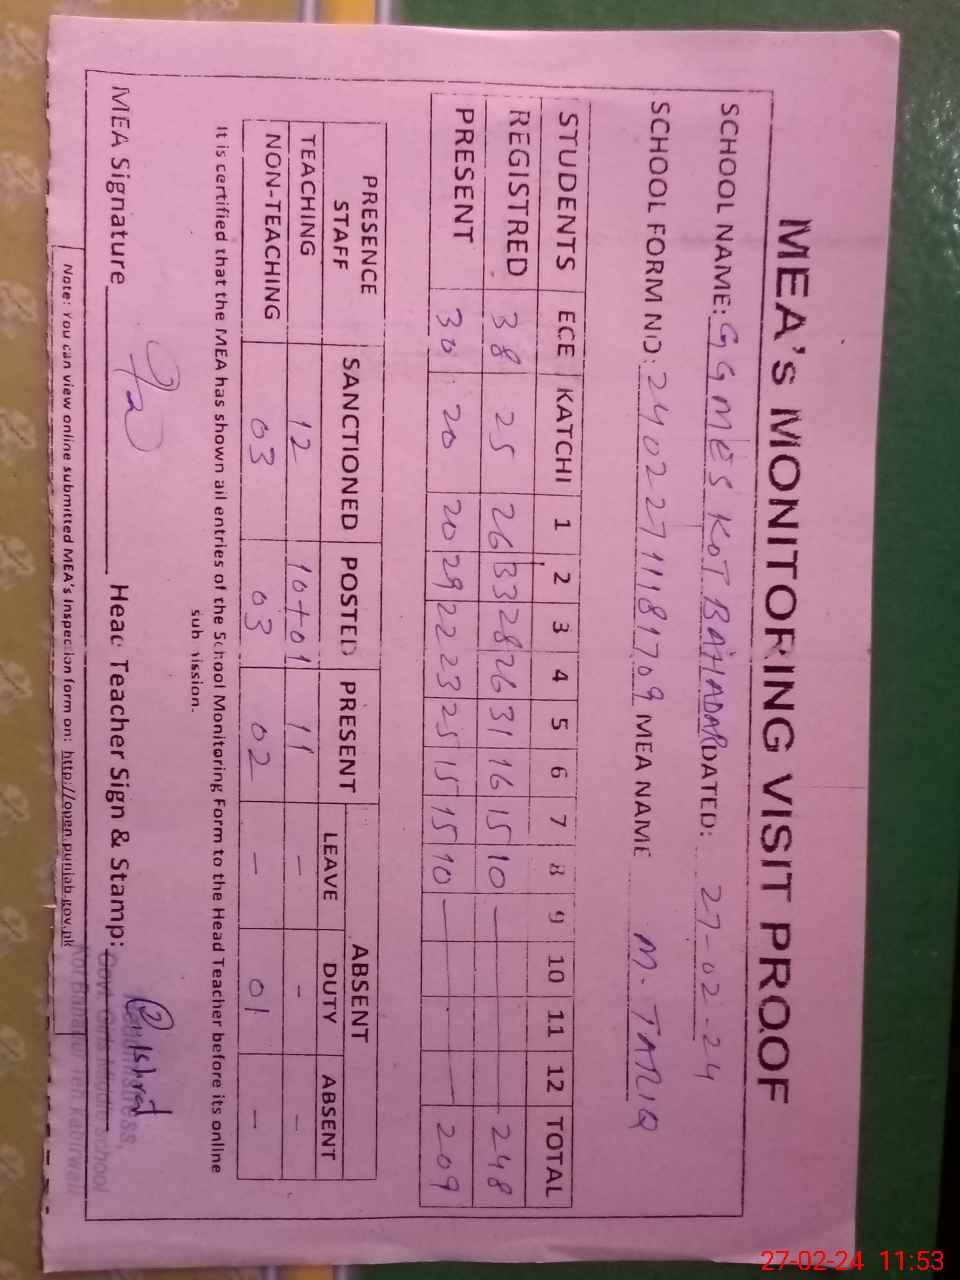 MEA's MONITORING VISIT PROOF
SCHOOL NAME: GGMES KOT BAHADAR DATED: 27-02-24
SCHOOL FORM NO: 24022711181709 MEA NAME M. TARIQ
STUDENTS ECE KATCHI 1 2 3 4 5 6 7 8 9 10 11 12 TOTAL
REGISTRED 38 25 26 33 28 26 31 16 15 10 — 248
PRESENT 30 20 20 29 22 23 25 15 15 10 — 209
PRESENCE STAFF SANCTIONED POSTED PRESENT ABSENT
LEAVE DUTY ABSENT
TEACHING 12 10+01 11 - - -
NON-TEACHING 03 03 02 - 01 -
It is certified that the MEA has shown all entries of the School Monitoring Form to the Head Teacher before its online
submission.
MEA Signature Head Teacher Sign & Stamp:
Headmistress,
Govt. Girls Middle School
Kot Bahadur Teh. Kabirwala
Note: You can view online submitted MEA's Inspection form on: http://open.punjab.gov.pk
27-02-24 11:53